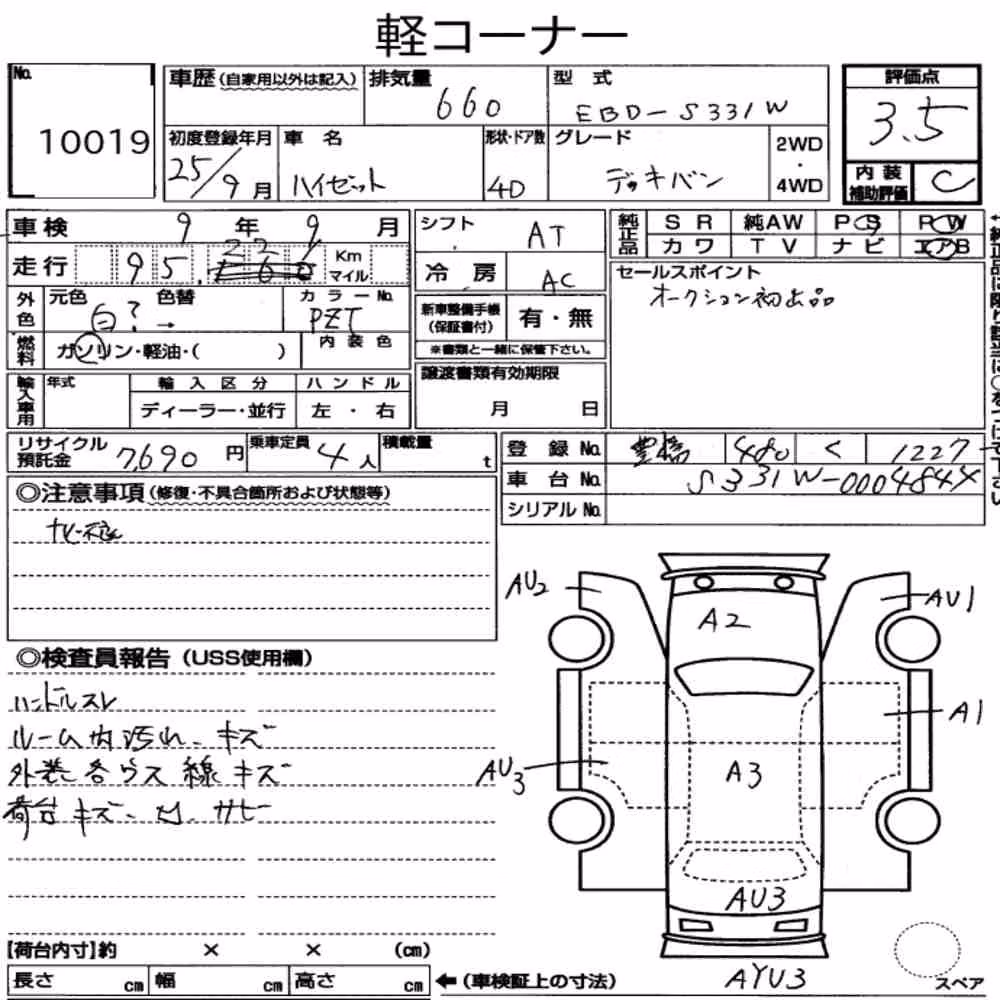 軽コーナー
No.
10019
車歴(自家用以外は記入)
排気量
660
型式
EBD-S331W
評価点
3.5
初度登録年月
25/9月
車名
ハイゼット
形状・ドア数
4D
グレード
デッキバン
2WD・4WD
内装補助評価
C
車検
9年9月
走行
95,229
Km
マイル
外色
元色
白?
色替
→
カラーNo.
PZT
燃料
ガソリン・軽油・( )
内装色
輸入車用
年式
輸入区分
ディーラー・並行
ハンドル
左・右
シフト
AT
冷房
AC
新車整備手帳(保証書付)
有・無
※書類と一緒に保管下さい。
譲渡書類有効期限
月 日
純正品
SR 純AW PS PW
カワ TV ナビ エアB
セールスポイント
オークション初出品
←純正品に限り該当に○をつけて下さい
リサイクル預託金
7,690円
乗車定員
4人
積載量
t
登録No.
豊橋 480 く 1227
車台No.
S331W-0004844
シリアルNo.
◎注意事項(修復・不具合箇所および状態等)
ナビ不良
◎検査員報告(USS使用欄)
ハンドルスレ
ルーム内汚れ、キズ
外装各ウス線キズ
荷台キズ、凹、サビ
AU2
A2
AU1
A1
AU3
A3
AU3
AYU3
スペア
【荷台内寸】約 × × (cm)
長さ cm 幅 cm 高さ cm
←(車検証上の寸法)